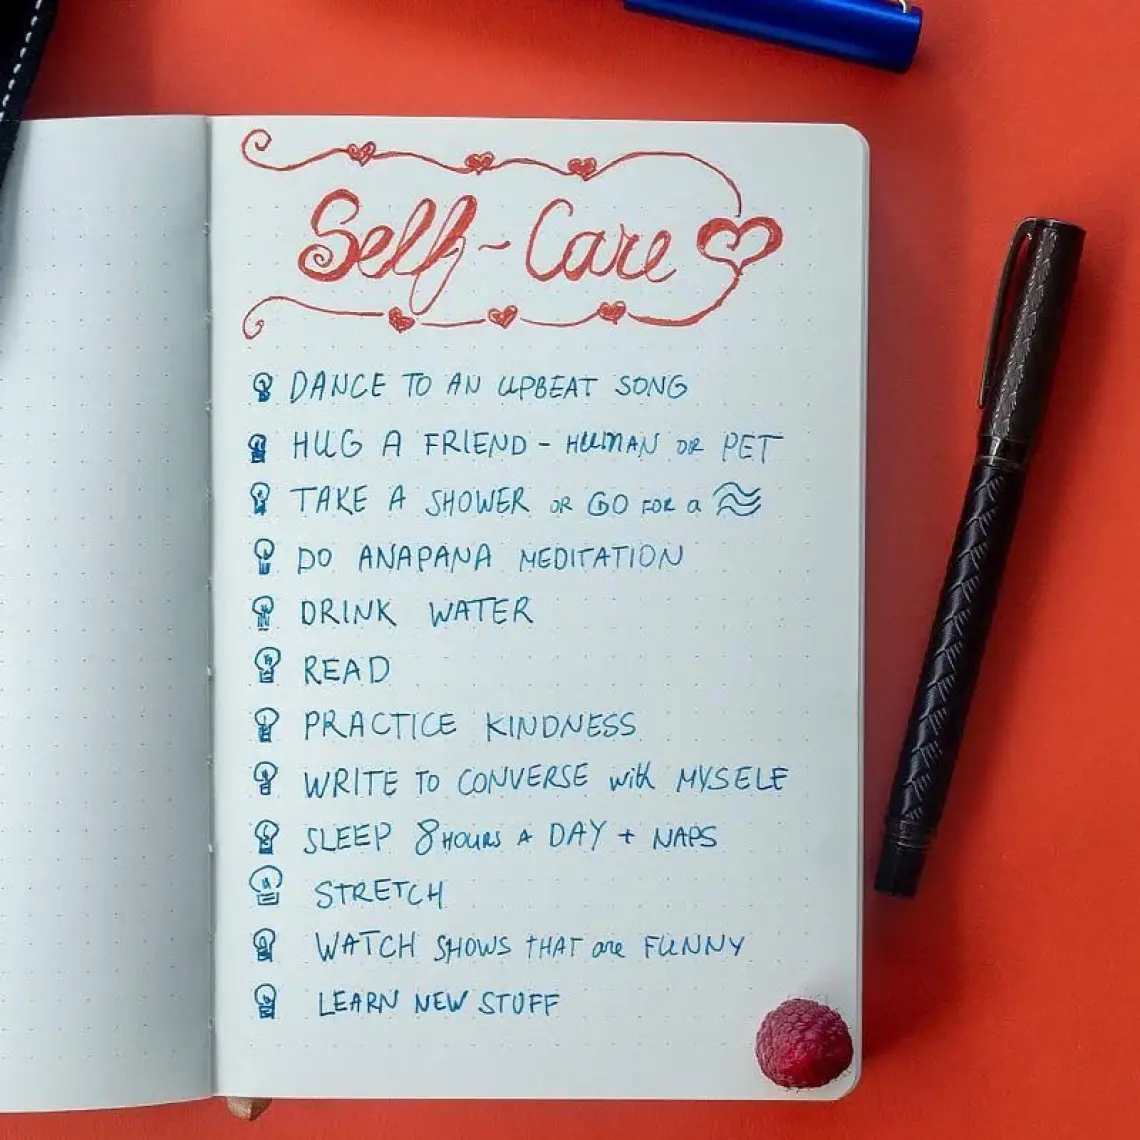 Self-Care
DANCE TO AN UPBEAT SONG
HUG A FRIEND - HUMAN OR PET
TAKE A SHOWER OR GO FOR a
DO ANAPANA MEDITATION
DRINK WATER
READ
PRACTICE KINDNESS
WRITE TO CONVERSE with MYSELF
SLEEP 8 HOURS A DAY + NAPS
STRETCH
WATCH SHOWS THAT are FUNNY
LEARN NEW STUFF